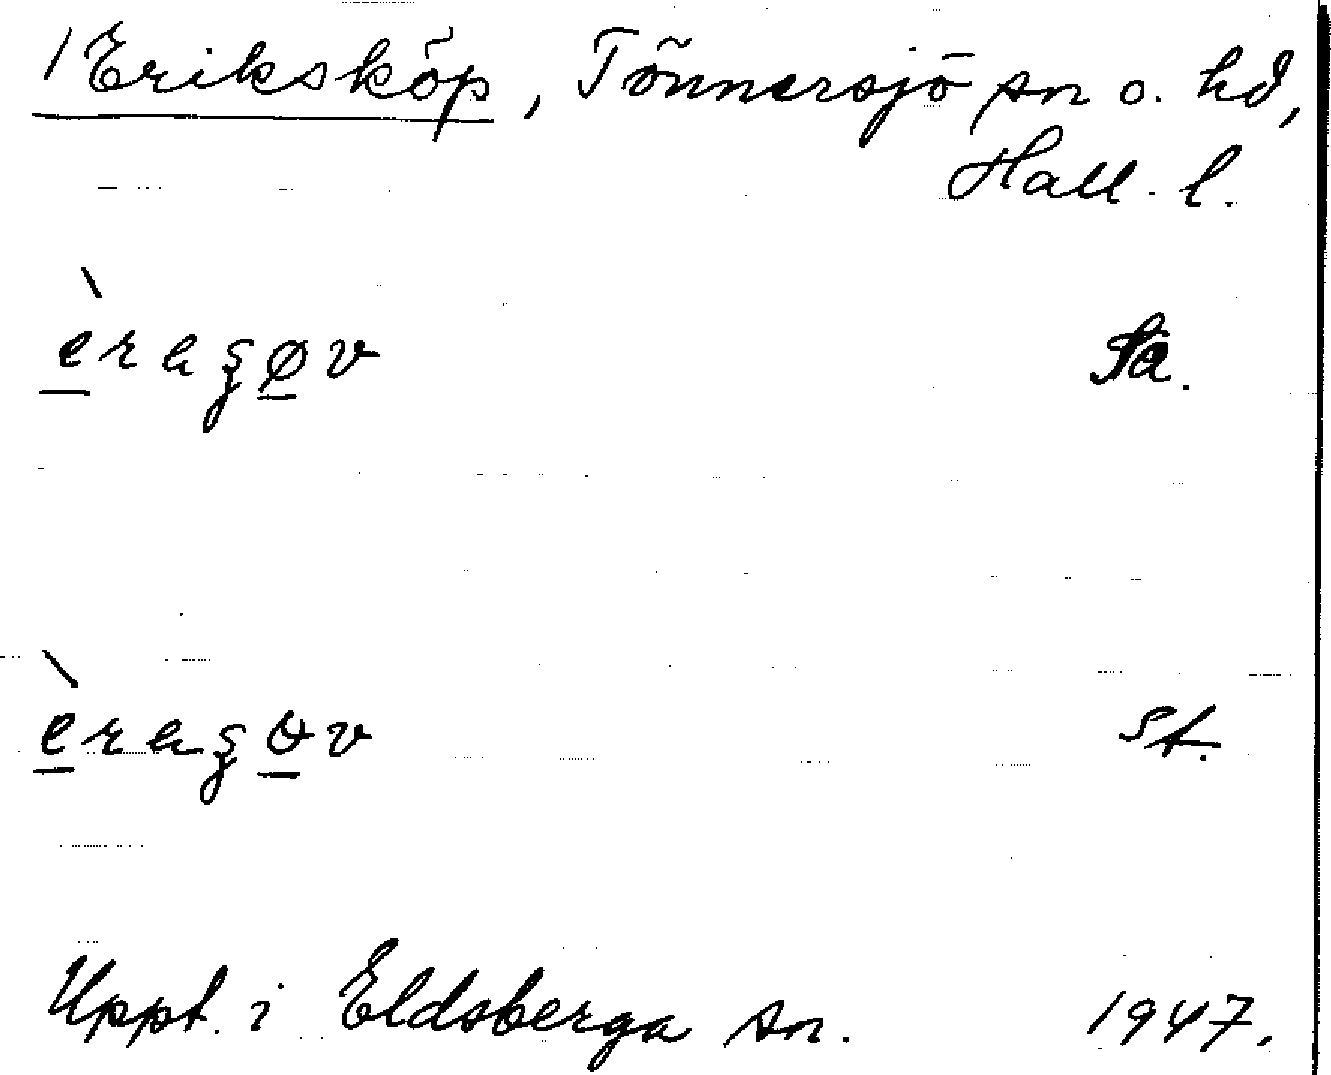 / Eriksköp, Tönnersjö sn o. hd,
Hall. l.
èragøv Sä.
St.
Uppt. i Eldsberga sn. 1947.